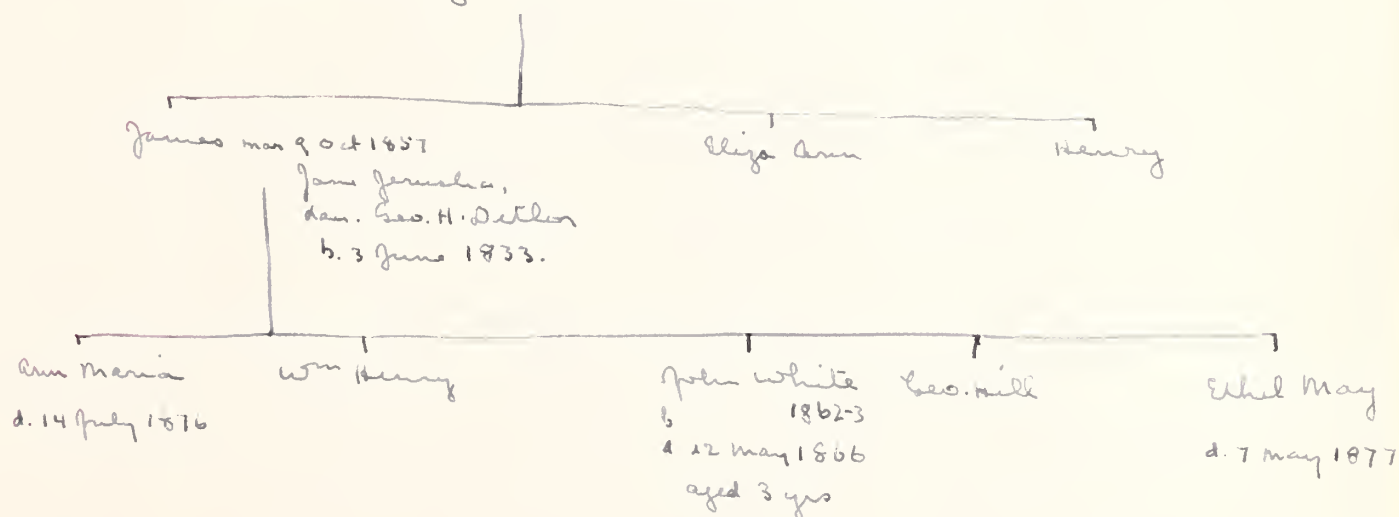 James mar 9 Oct 1857
Jane Jerusha,
dau. Geo. H. Detlor
b. 3 June 1833.
Eliza Ann
Henry
Ann Maria
d. 14 July 1876
Wm Henry
John White
b 1862-3
d 12 May 1866
aged 3 yrs
Geo. Hill
Ethel May
d. 7 May 1877